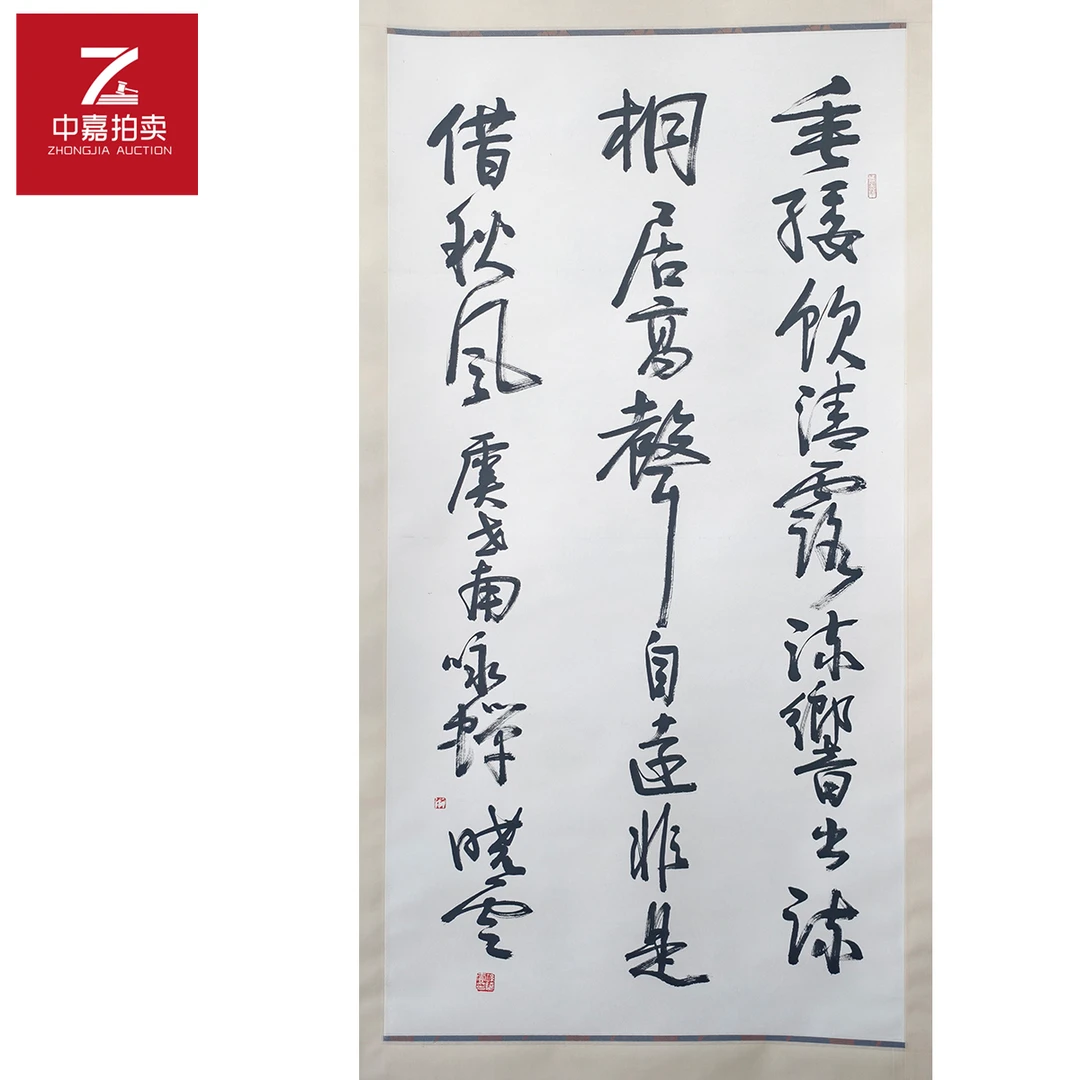 中嘉拍卖
ZHONGJIA AUCTION
垂緌飲清露流響出疏
桐居高聲自遠非是
借秋風 虞世南咏蟬 曉雲